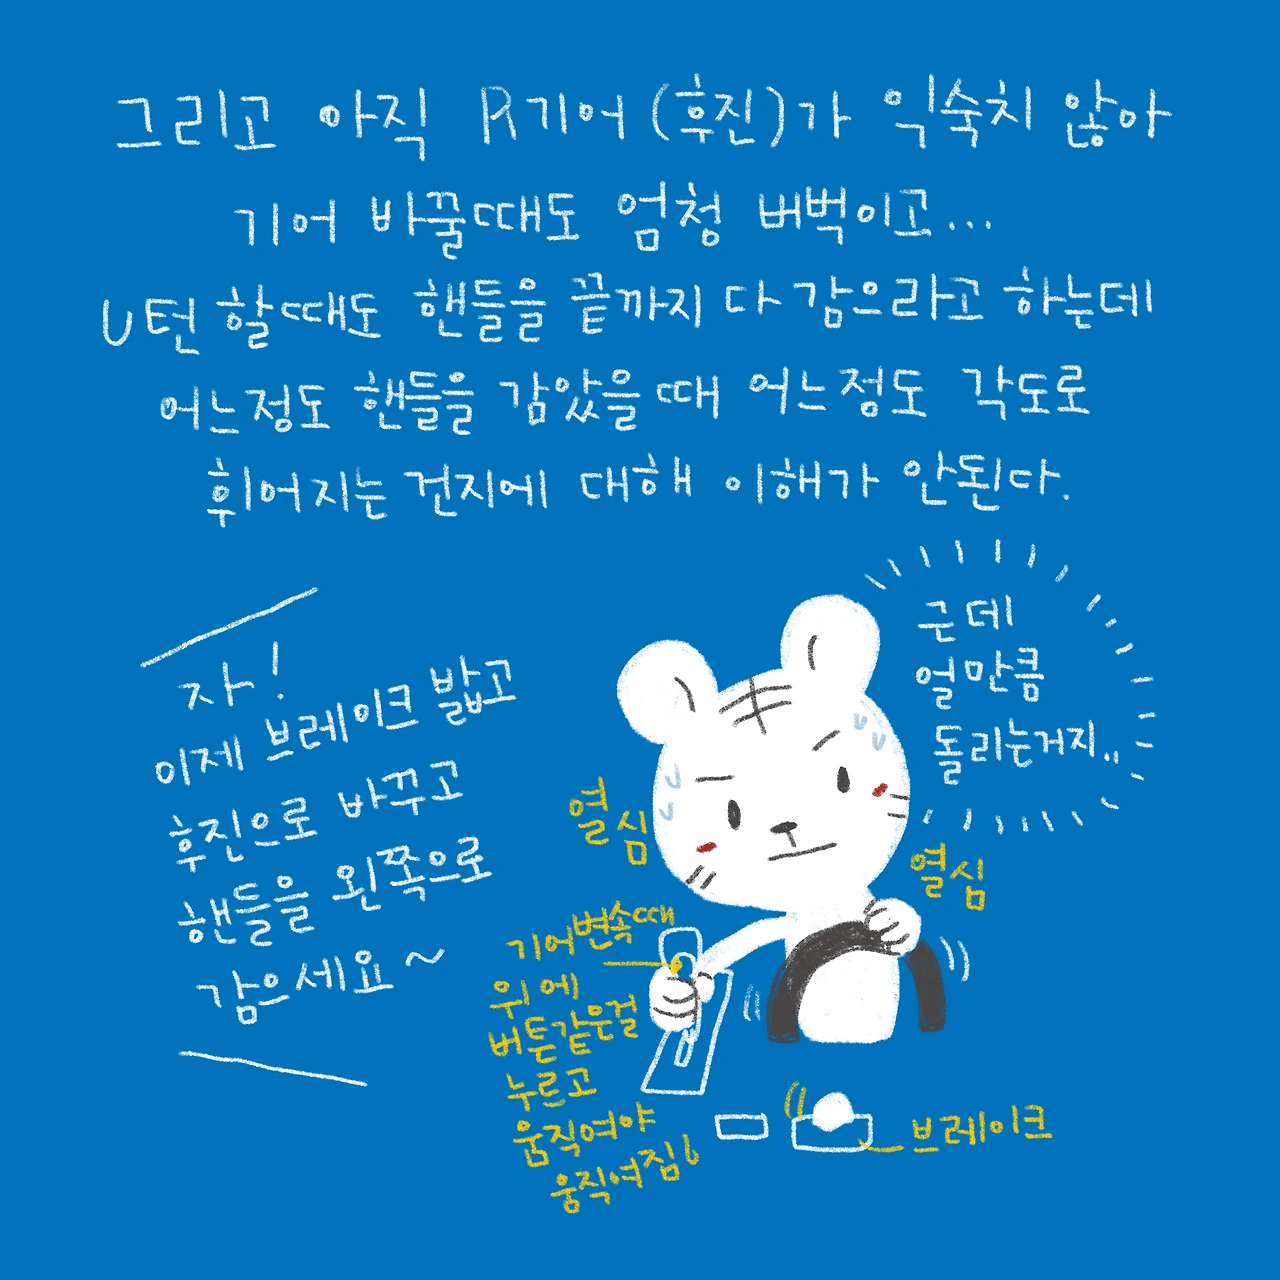 그리고 아직 R기어(후진)가 익숙치 않아
기어 바꿀때도 엄청 버벅이고...
U턴 할때도 핸들을 끝까지 다 감으라고 하는데
어느정도 핸들을 감았을때 어느정도 각도로
휘어지는 건지에 대해 이해가 안된다.
자!
이제 브레이크 밟고
후진으로 바꾸고
핸들을 왼쪽으로
감으세요~
근데
얼만큼
돌리는거지..
열심
열심
기어변속때
위에
버튼같은걸
누르고
움직여야
움직여짐
브레이크